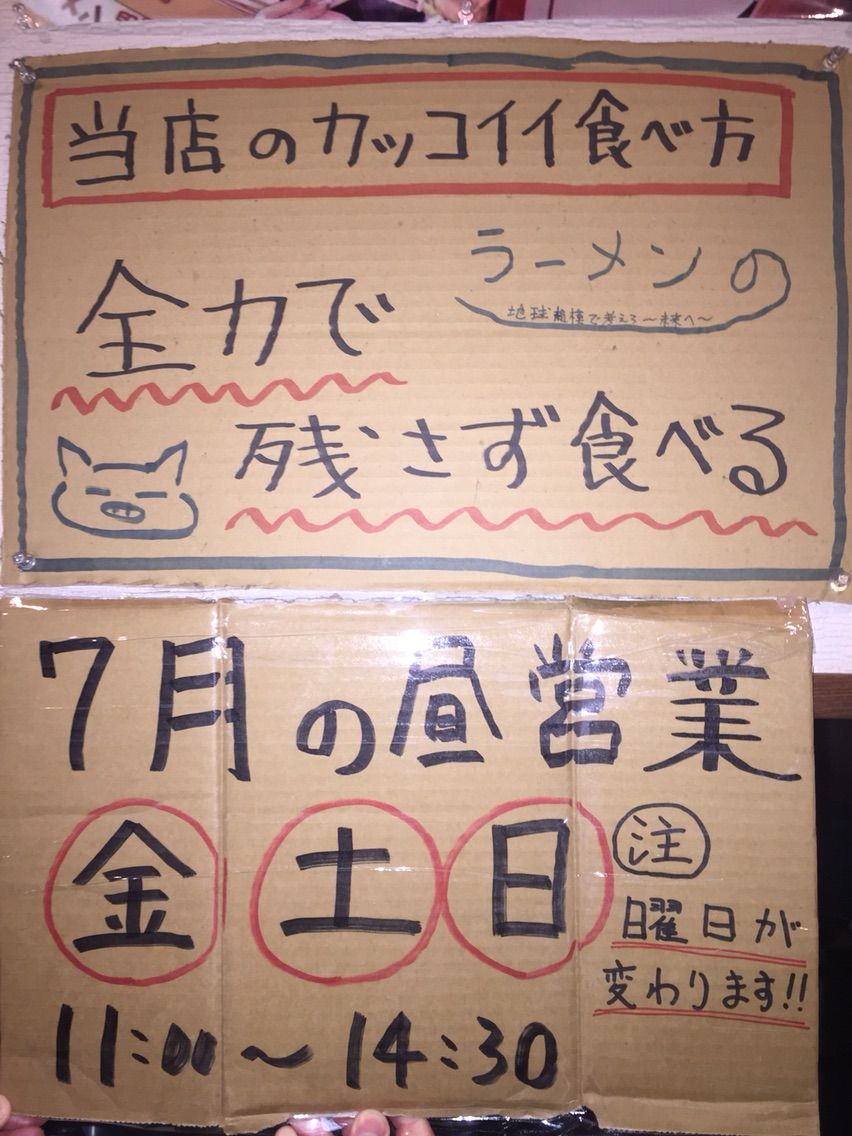 当店のカッコイイ食べ方
ラーメンの
地球規模で考えろ～未来へ～
全力で
残さず食べる
7月の昼営業
金 土 日
注
曜日が
変わります!!
11:00～14:30